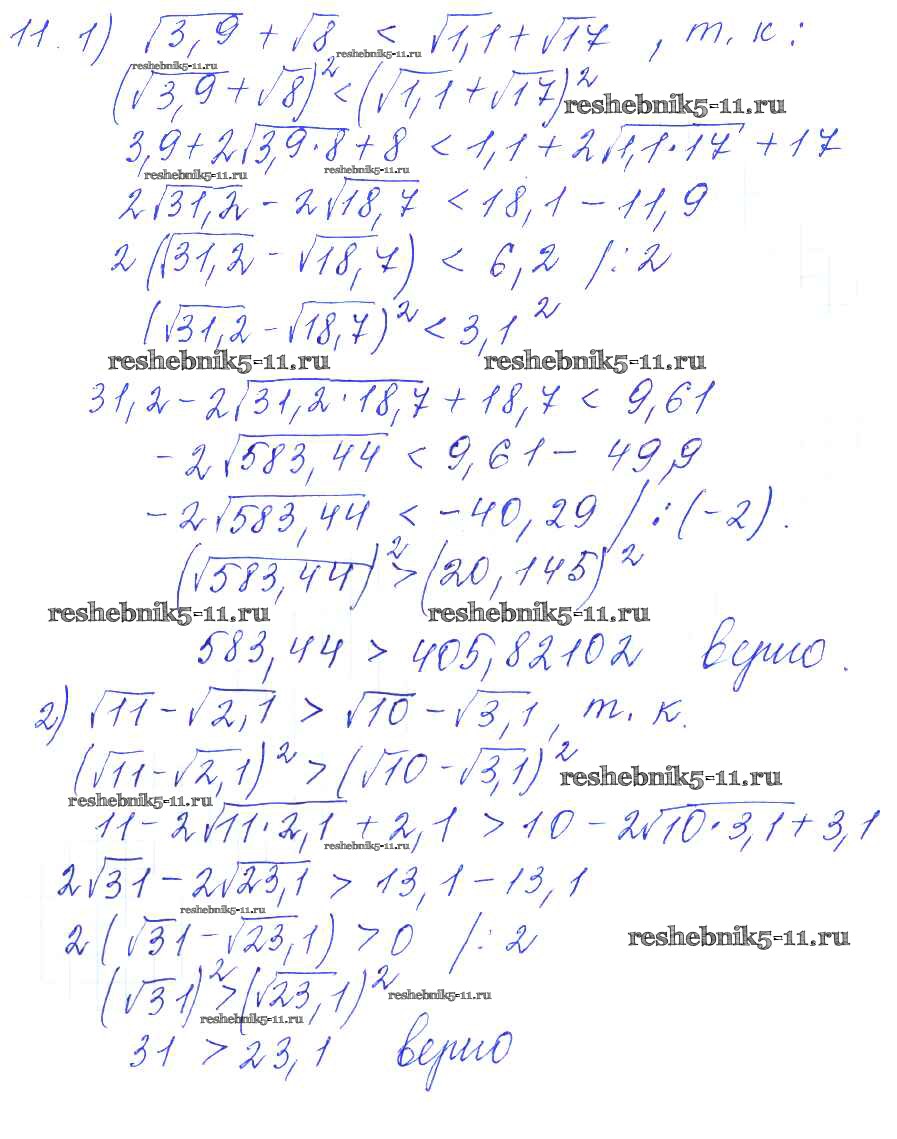 11. 1) √3,9 + √8 < √1,1 + √17 , т.к:
reshebnik5-11.ru reshebnik5-11.ru
(√3,9 + √8)² < (√1,1 + √17)²
reshebnik5-11.ru
3,9 + 2√3,9·8 + 8 < 1,1 + 2√1,1·17 + 17
reshebnik5-11.ru reshebnik5-11.ru
2√31,2 - 2√18,7 < 18,1 - 11,9
2 (√31,2 - √18,7) < 6,2 /: 2
(√31,2 - √18,7)² < 3,1²
reshebnik5-11.ru reshebnik5-11.ru
31,2 - 2√31,2·18,7 + 18,7 < 9,61
-2√583,44 < 9,61 - 49,9
-2√583,44 < -40,29 /: (-2).
(√583,44)² > (20,145)²
reshebnik5-11.ru reshebnik5-11.ru
583,44 > 405,82102 верно.
2) √11 - √2,1 > √10 - √3,1, т.к.
(√11 - √2,1)² > (√10 - √3,1)²
reshebnik5-11.ru
reshebnik5-11.ru
11 - 2√11·2,1 + 2,1 > 10 - 2√10·3,1 + 3,1
reshebnik5-11.ru
2√31 - 2√23,1 > 13,1 - 13,1
reshebnik5-11.ru
2 (√31 - √23,1) > 0 /: 2
reshebnik5-11.ru
(√31)² > (√23,1)²
reshebnik5-11.ru
reshebnik5-11.ru
31 > 23,1 верно